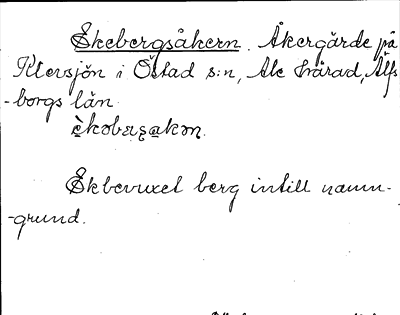 Ekebergsåkern. Åkergärde på
Klevsjön i Östad s:n, Ale härad, Älfs
-borgs län
Ekbevuxet berg intill namn-
-grund.